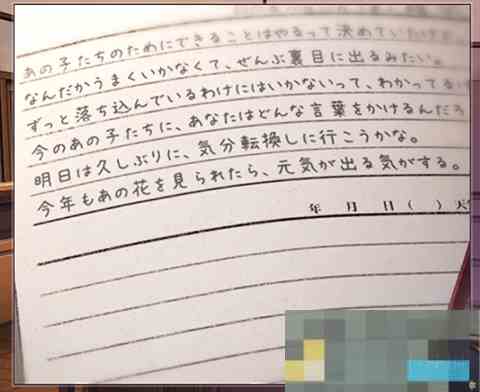 あの子たちのためにできることはやるって決めていたけど
なんだかうまくいかなくて、ぜんぶ裏目に出るみたい。
ずっと落ち込んでいるわけにはいかないって、わかってる
今のあの子たちに、あなたはどんな言葉をかけるんだろ
明日は久しぶりに、気分転換しに行こうかな。
今年もあの花を見られたら、元気が出る気がする。
年 月 日( ) 天